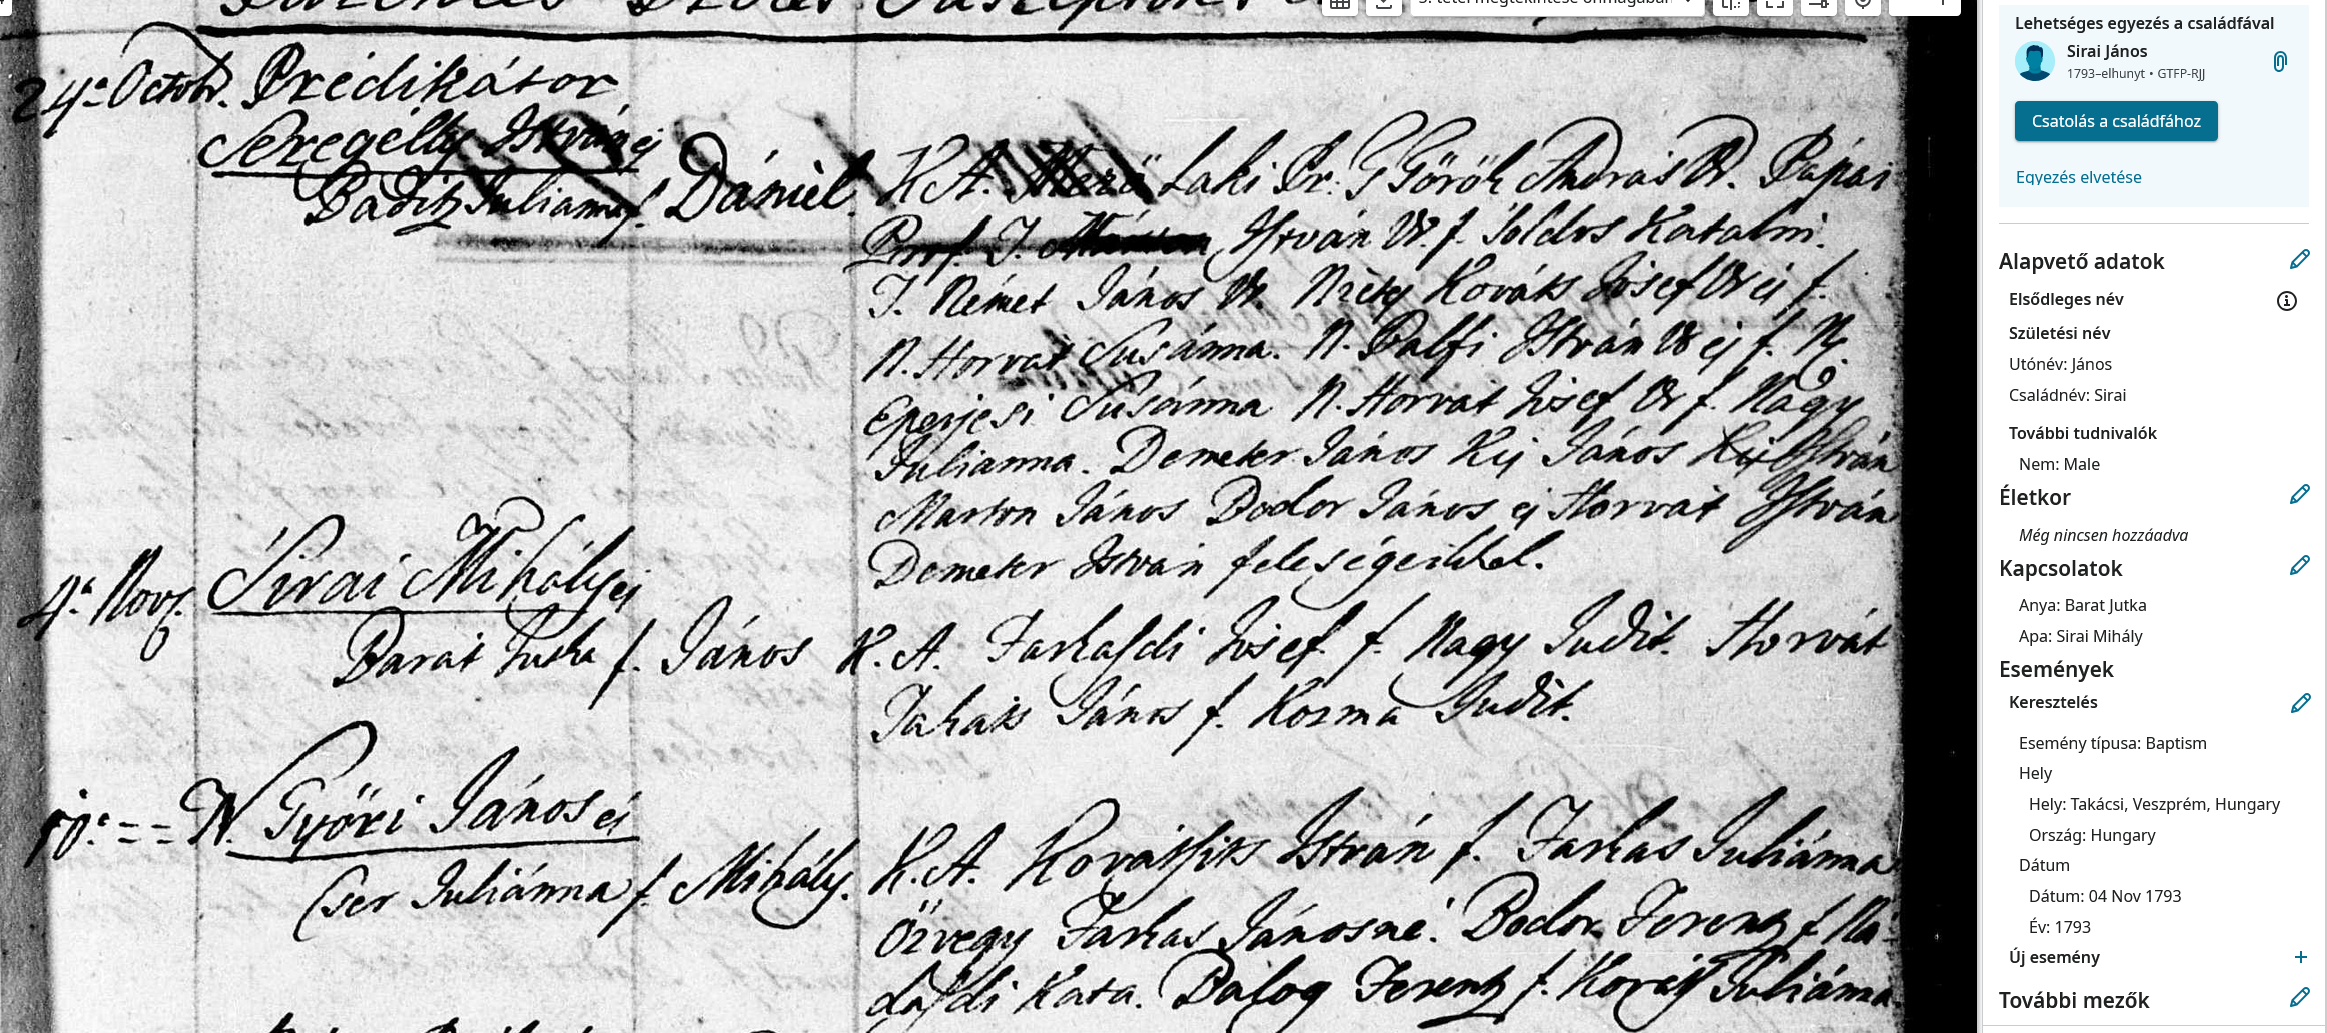 24ª Octobr. Prédikátor
Seregélly István és
Baditz Julianna f. Dániel. K.A. Mező Laki Pr. G Görök András Ur. Pápai
Prof. T. István Ur. f. Soldos Katalin.
T. Német János Ur. Nztes Kováts Josef Ur és f.
N. Horvat Susánna. N. Palfi István Ur és f. N.
Eperjesi Susánna N. Horvat Josef Ur f. Nagy
Julianna. Demeter János Kis János Kis István
Marton János Bodor János és Horvat István
Demeter István feleségeikkel.
4ª Nov. Sirai Mihály és
Barat Jutka f. János K.A. Farkasdi Josef f. Nagy Judit. Horvát
Takats János f. Kozma Judit.
10ª = = N. Győri János és
Cser Juliánna f. Mihály. K.A. Kovátsits István f. Farkas Juliánna
Özvegy Farkas Jánosné. Bodor Ferentz f. Ná-
dasdi Kata. Balog Ferentz f. Juliánna.
Lehetséges egyezés a családfával
Sirai János
1793–elhunyt • GTFP-RJJ
Csatolás a családfához
Egyezés elvetése
Alapvető adatok
Elsődleges név
Születési név
Utónév: János
Családnév: Sirai
További tudnivalók
Nem: Male
Életkor
Még nincsen hozzáadva
Kapcsolatok
Anya: Barat Jutka
Apa: Sirai Mihály
Események
Keresztelés
Esemény típusa: Baptism
Hely
Hely: Takácsi, Veszprém, Hungary
Ország: Hungary
Dátum
Dátum: 04 Nov 1793
Év: 1793
Új esemény
További mezők